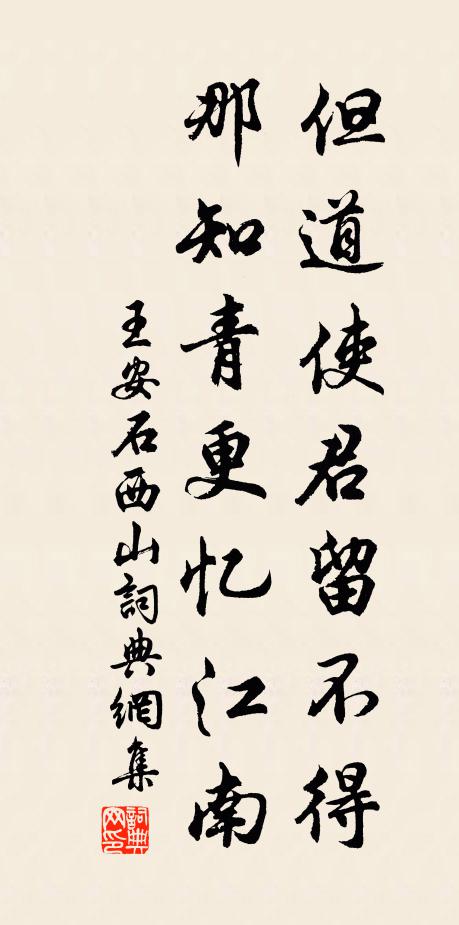 但道使君留不得
那知青更忆江南
王安石西山詞典網集
詞典
网印